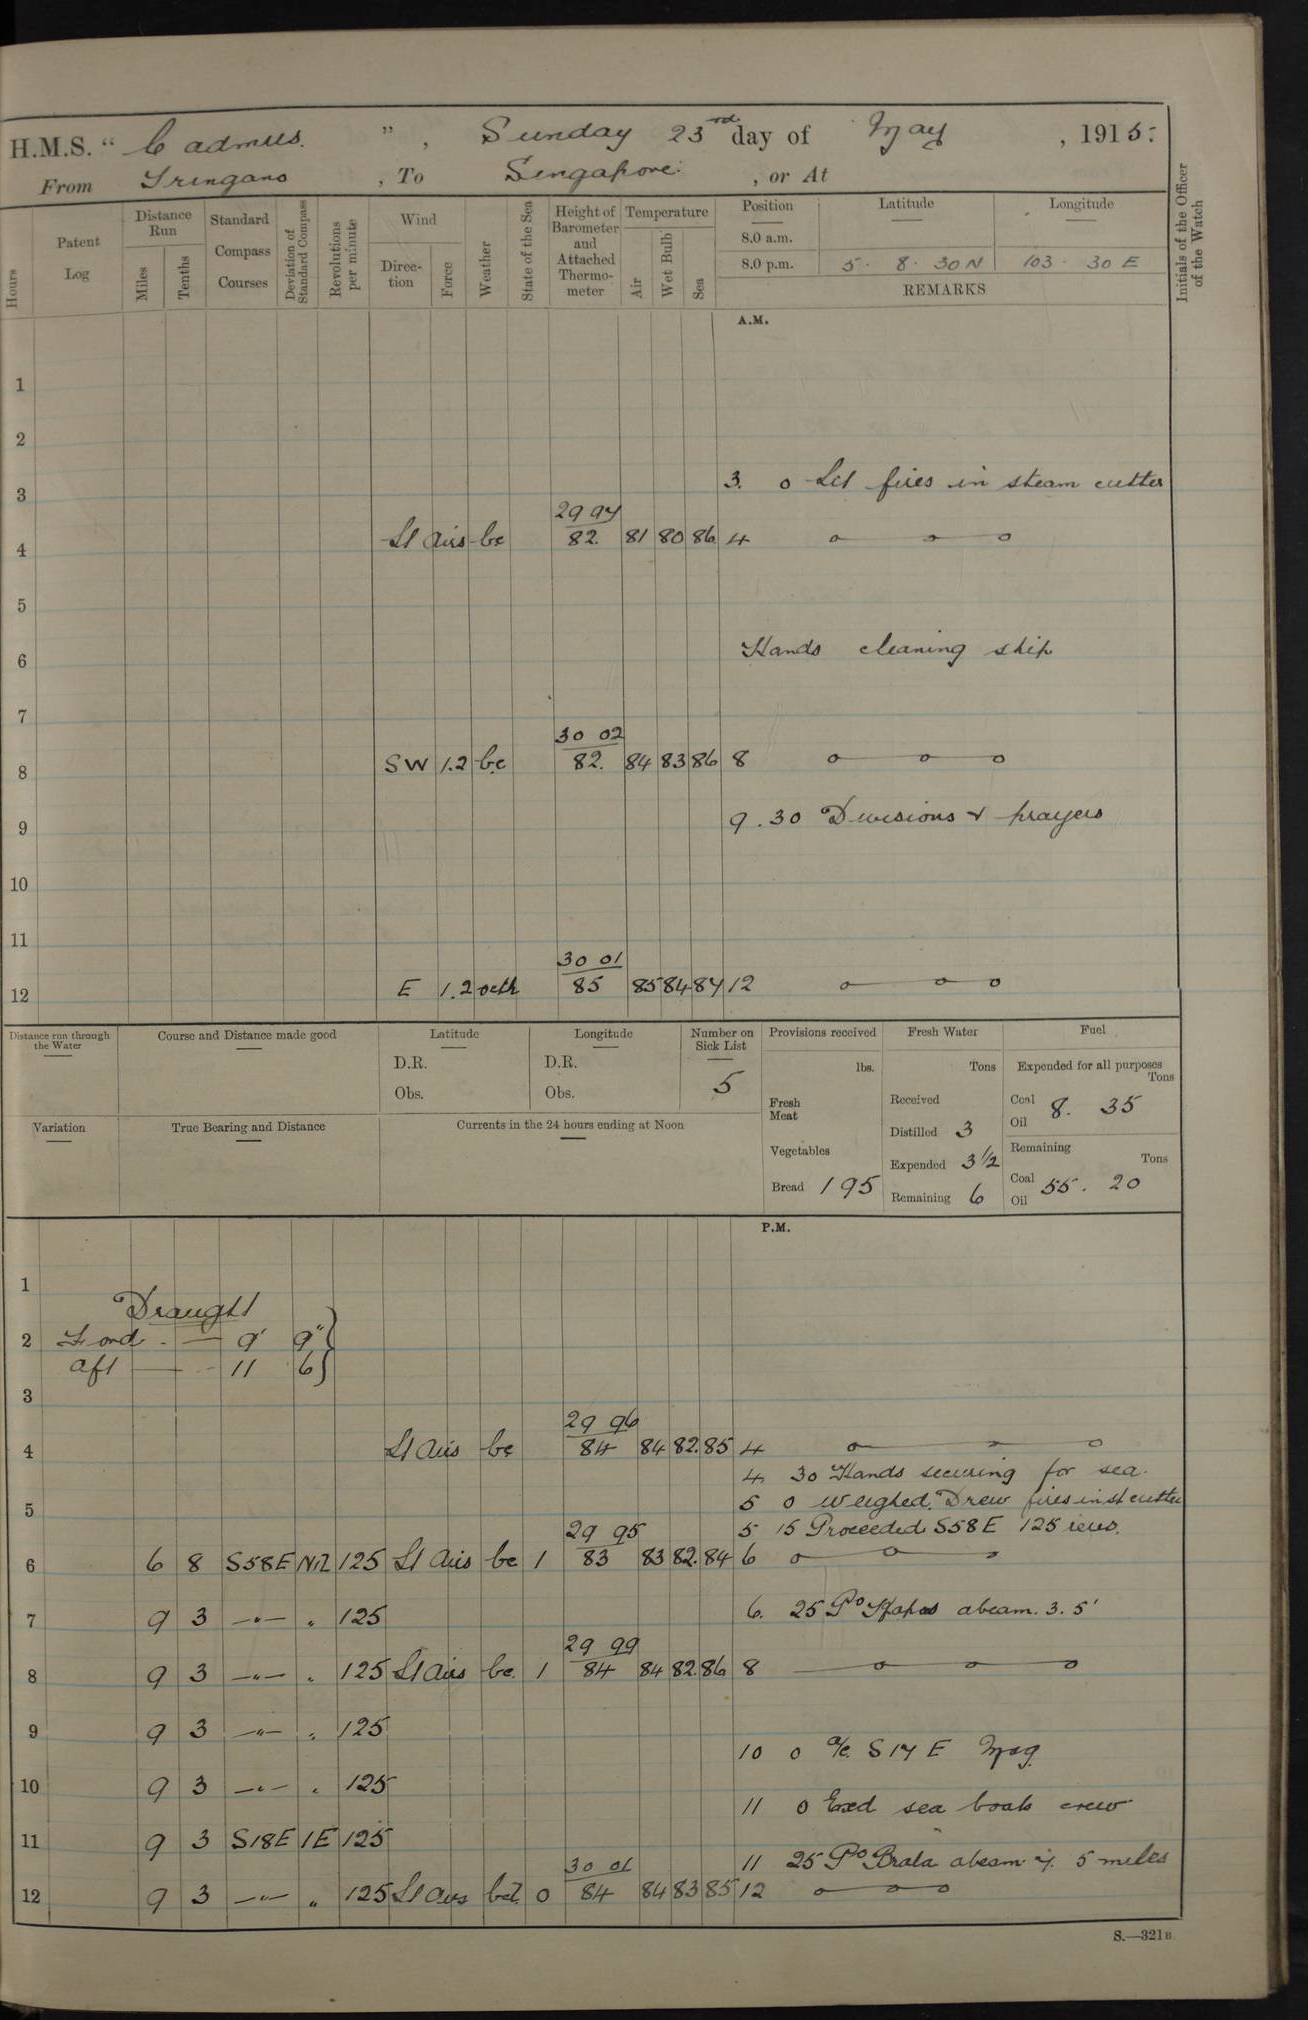 H.M.S. " Cadmus. ", Sunday 23rd day of May, 1915.
From Tringano, To Singapore, or At
Hours
Patent Log
Distance Run
Miles
Tenths
Standard Compass Courses
Deviation of Standard Compass
Revolutions per minute
Wind
Direction
Force
Weather
State of the Sea
Height of Barometer and Attached Thermometer
Temperature
Air
Wet Bulb
Sea
Position Latitude Longitude
8.0 a.m.
8.0 p.m. 5 . 8 . 30 N 103 . 30 E
REMARKS
Initials of the Officer of the Watch
A.M.
1
2
3 3. 0 Lit fires in steam cutter
29 97
4 Lt Airs bc 82. 81 80 86 4
5
6 Hands cleaning ship
7
30 02
8 SW 1.2 bc 82. 84 83 86 8
9 9.30 Divisions & prayers
10
11
30 01
12 E 1.2 octh 85 85 84 87 12
Distance run through the Water
Course and Distance made good
Latitude
D.R.
Obs.
Longitude
D.R.
Obs.
Number on Sick List
5
Variation
True Bearing and Distance
Currents in the 24 hours ending at Noon
Provisions received
lbs.
Fresh Meat
Vegetables
Bread 195
Fresh Water
Tons
Received
Distilled 3
Expended 3½
Remaining 6
Fuel
Expended for all purposes
Tons
Coal 8. 35
Oil
Remaining
Tons
Coal 55. 20
Oil
P.M.
1
Draught
2 Ford - — 9' 9" }
aft — 11 6 }
3
29 96
4 Lt Airs bc 84 84 82. 85 4
4. 30 Hands securing for sea.
5 5 0 weighed. Drew fires in st cutter
29 95 5 15 Proceeded S58E 125 revs.
6 6 8 S58E Nil 125 Lt Airs bc 1 83 83 82. 84 6
7 9 3 —"— " 125 6. 25 Po Kapas abeam. 3. 5'
29 99
8 9 3 —"— " 125 Lt Airs bc. 1 84 84 82. 86 8
9 9 3 —"— " 125
10 0 a/c S 17 E Mag.
10 9 3 —"— " 125
11 0 Exed sea boats crew
11 9 3 S18E 1E 125
30 01 11 25 Po Brala abeam 5 miles
12 9 3 —"— " 125 Lt Airs 0 84 84 83 85 12
S.—321B